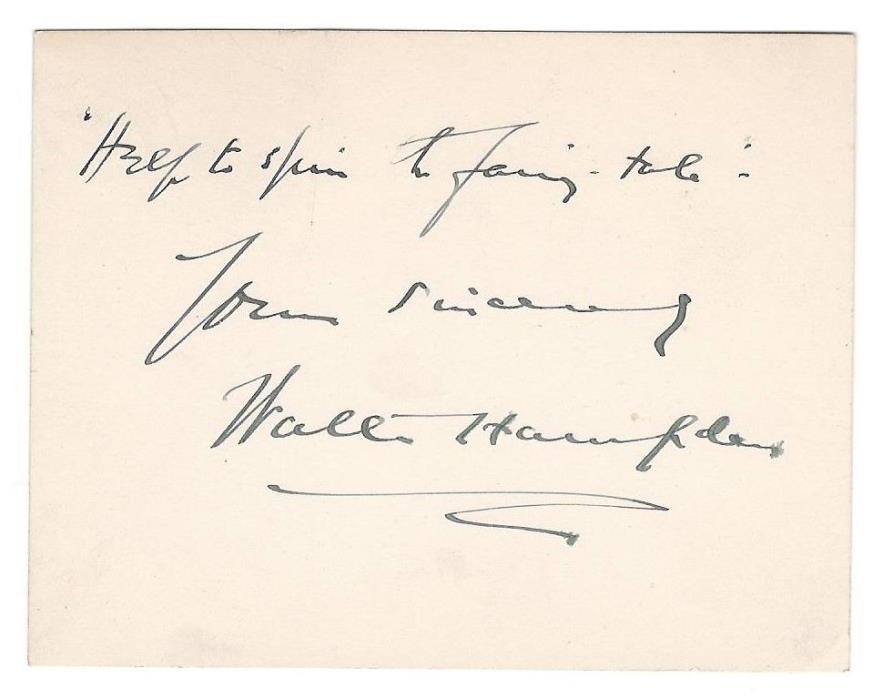 "Help to spin the fairy-tale".
Yours sincerely
Walter Hampden